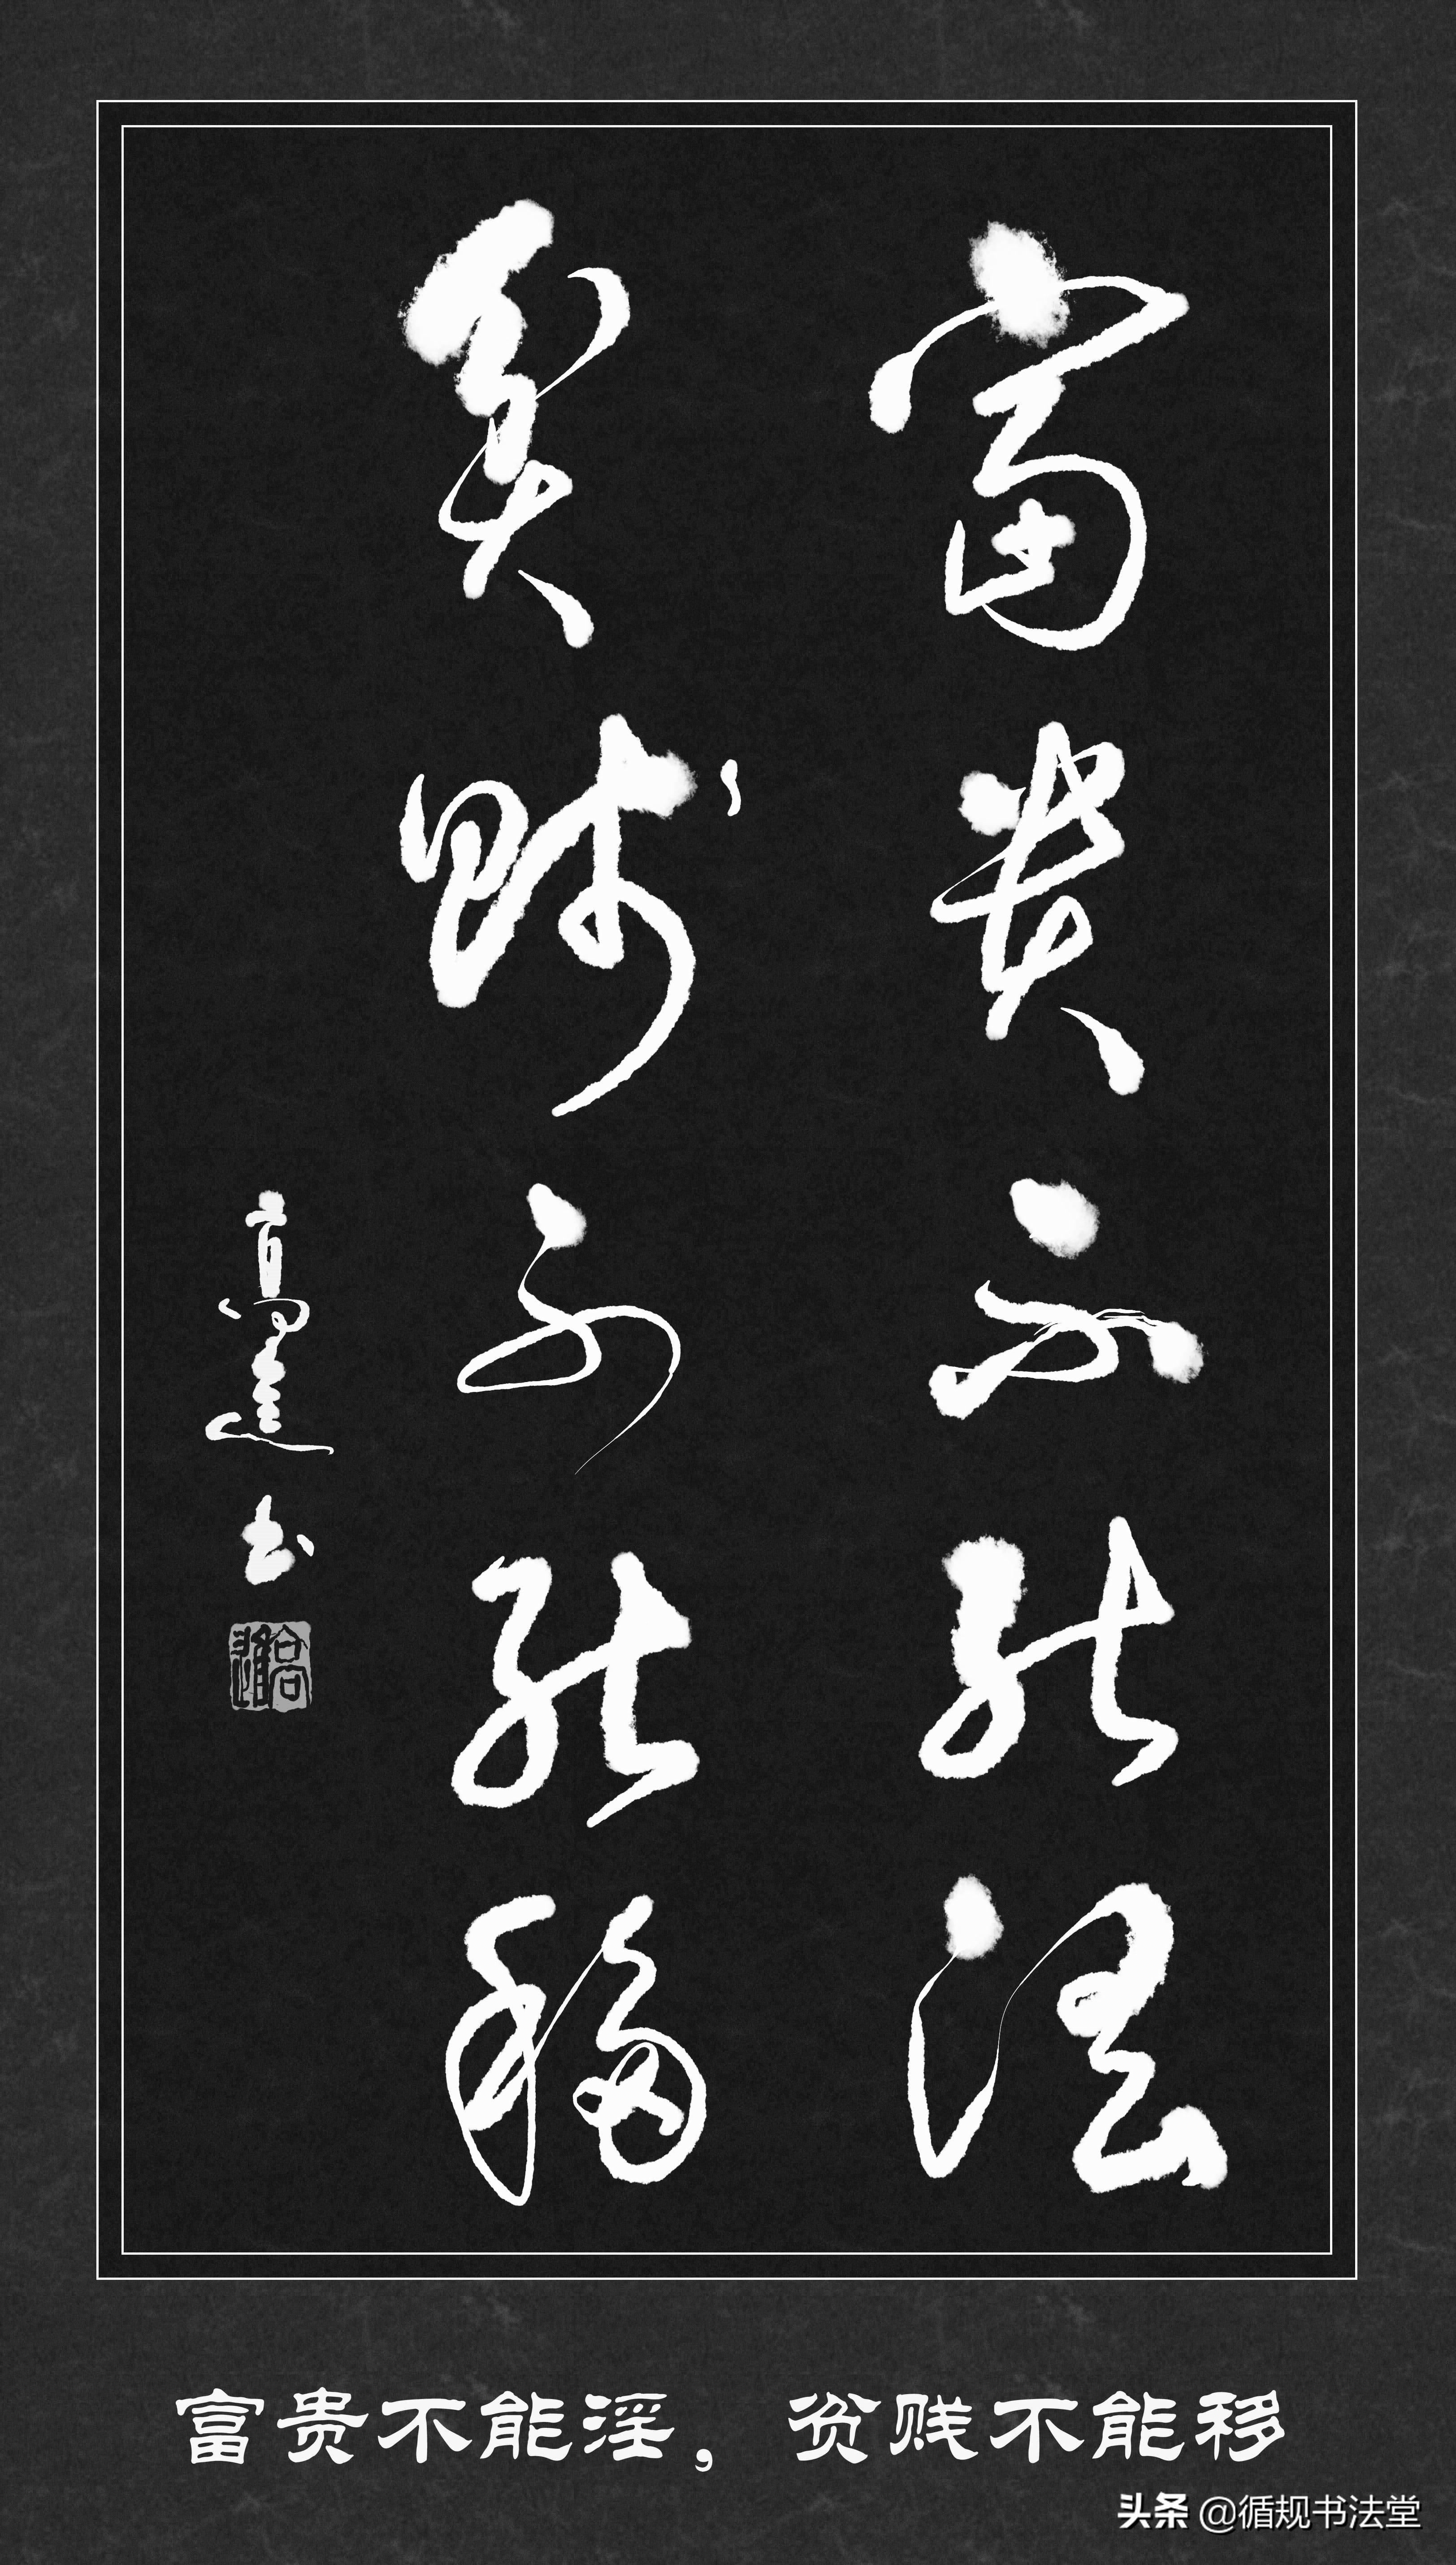 富貴不能淫
貧賤不能移
高建书
富贵不能淫，贫贱不能移
头条 @循规书法堂